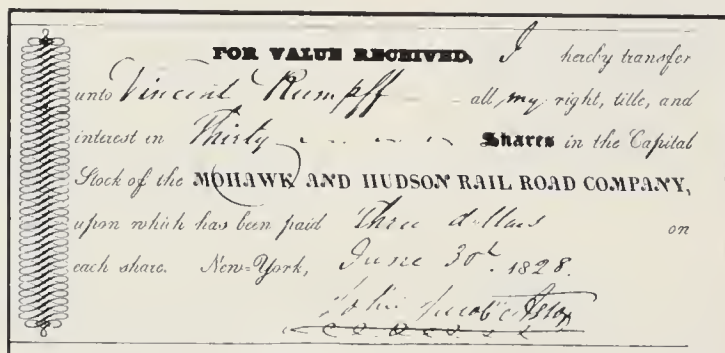 FOR VALUE RECEIVED, I hereby transfer
unto Vincent Rumpff all my right, title, and
interest in Thirty Shares in the Capital
Stock of the MOHAWK AND HUDSON RAIL ROAD COMPANY,
upon which has been paid three dollars on
each share. New=York, June 30th. 1828.
John Jacob Astor